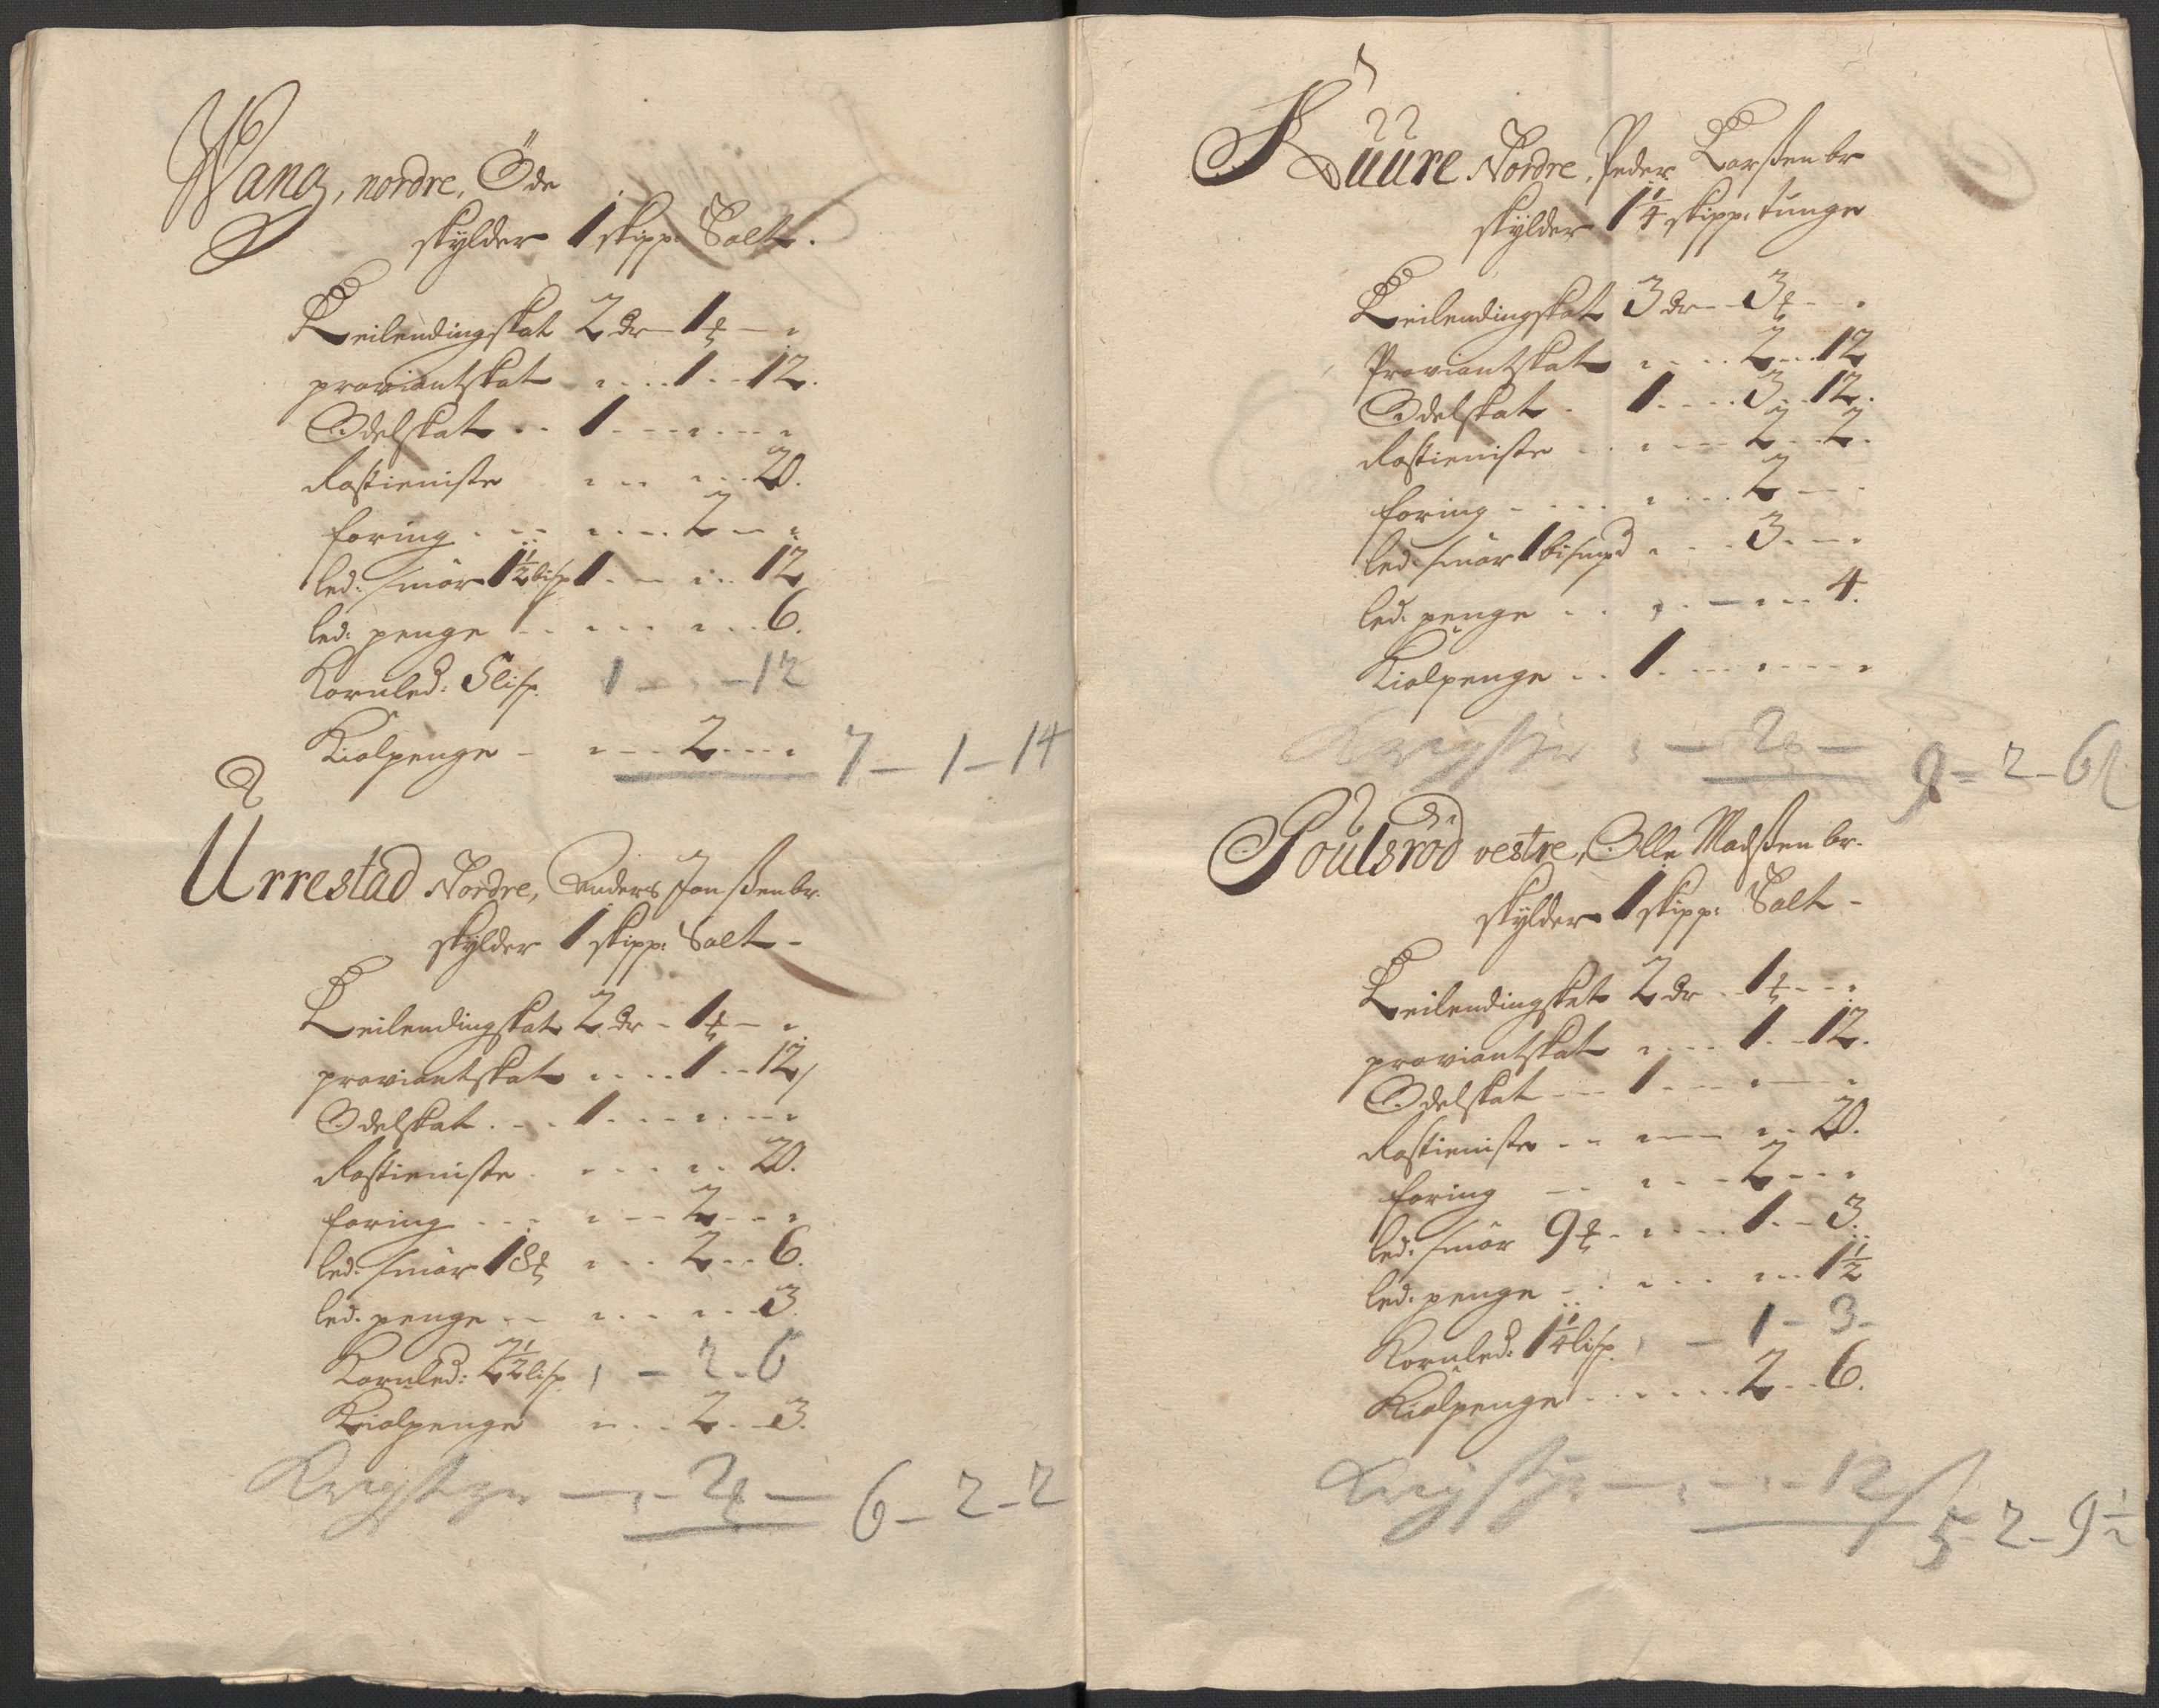 Wang, nordre, Öde
skylder 1 skipp: Salt.
Leilendingskat 2 dr 1 ꝑ
proviantskat 1 12.
Odelskat 1
Rostieniste 20.
foring 2
led: smör 1½ lisp 1 12
led: penge 6.
Kornled: 5 lisp. 1 - 12
Kiolpenge 2 7 - 1 - 14
Ürrestad Nordre, Anders Jonssen br.
skylder 1 skipp: Salt
Leilendingskat 2 dr 1 ꝑ
proviantskat 1 12
Odelskat 1
Rostieniste 20.
foring 2
led: smör 18 ꝑ 2 6.
led: penge 3.
Kornled: 2½ lisp. - 2 - 6
Kiolpenge 2 3.
Krigstyr - 2 - 6 - 2 - 2
Kuure Nordre, Peder Larssen br
skylder 1¼ skipp: tunge
Leilendingskat 3 dr 3 ꝑ
Proviantskat 2 12
Odelskat 1 3 12.
Rostieniste 2 2.
foring 2
led: smör 1 bismpd 3
led: penge 4.
Kiolpenge 1
Krigstyr - 2 - 9 - 2 - 6
Poulsröd vestre, Olle Madssen br.
skylder 1 skipp: Salt
Leilendingskat 2 dr 1 ꝑ
proviantskat 1 12.
Odelskat 1
Rostieniste 20.
foring 2
led: smör 9 ꝑ 1 3.
led: penge 1½
Kornled: 1¼ lisp. - 1 - 3 -
Kiolpenge 2 6.
Krigstyr - 12
5 - 2 - 9½